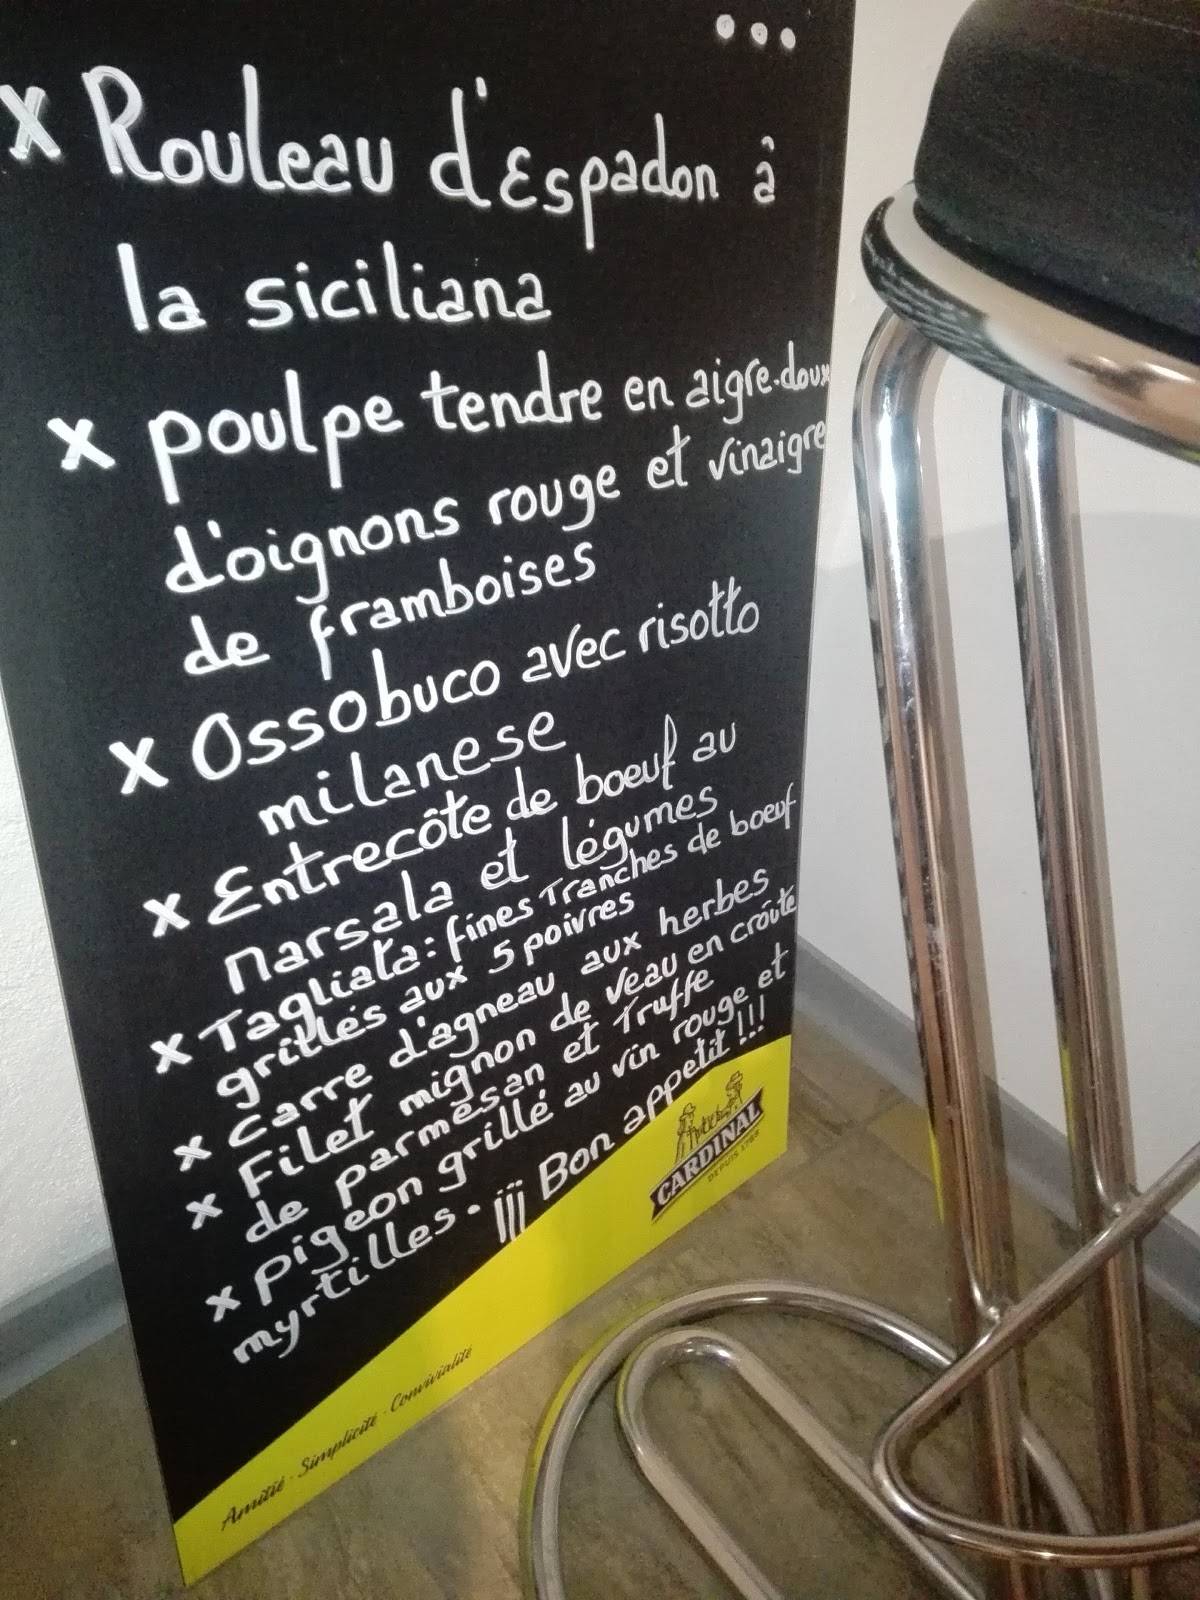 ...
x Rouleau d'Espadon à
la siciliana
x poulpe tendre en aigre-doux
d'oignons rouge et vinaigre
de framboises
x Ossobuco avec risotto
milanese
x Entrecôte de boeuf au
Marsala et légumes
x Tagliata: fines Tranches de boeuf
grillés aux 5 poivres
x Carre d'agneau aux herbes
x Filet mignon de veau en croûte
de parmesan et Truffe
x pigeon grillé au vin rouge et
myrtilles. ¡¡¡ Bon appetit !!!
CARDINAL
DEPUIS 1788
Amitié · Simplicité · Convivialité